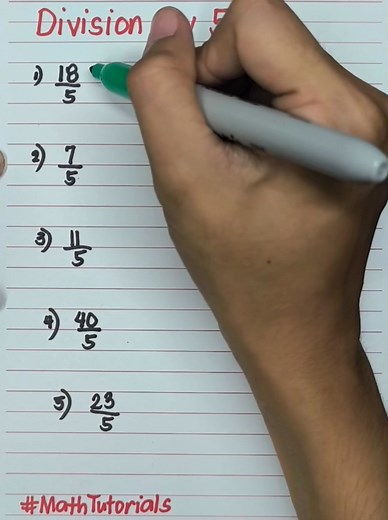 Division 5
1) 18/5
2) 7/5
3) 11/5
4) 40/5
5) 23/5
#MathTutorials